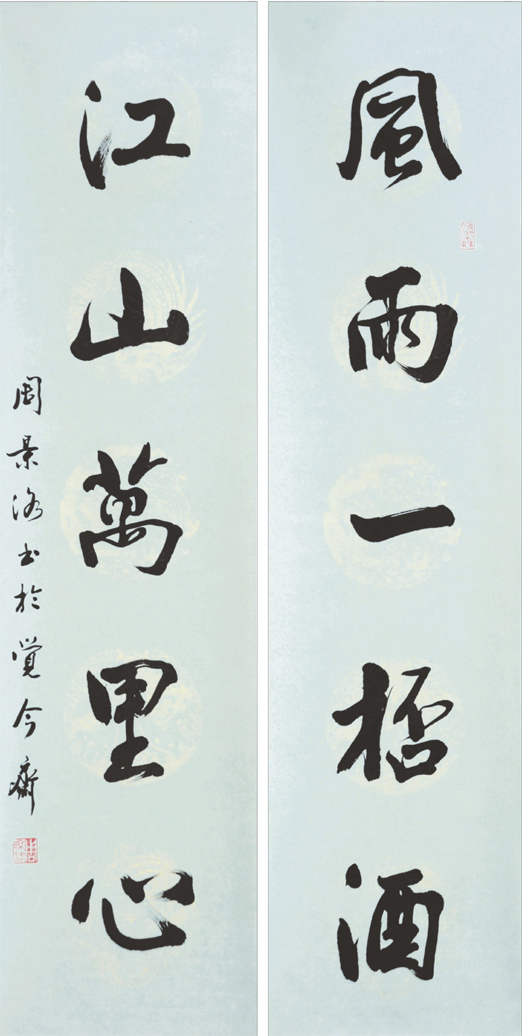 風雨一桮酒
江山萬里心
周景洛書於覺今齋